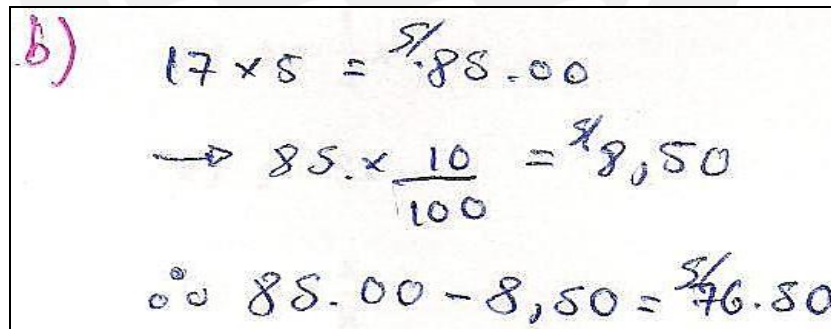 b) 17 × 5 = S/.85.00
→ 85. × 10/100 = S/8,50
∴ 85.00 - 8,50 = S/76.50